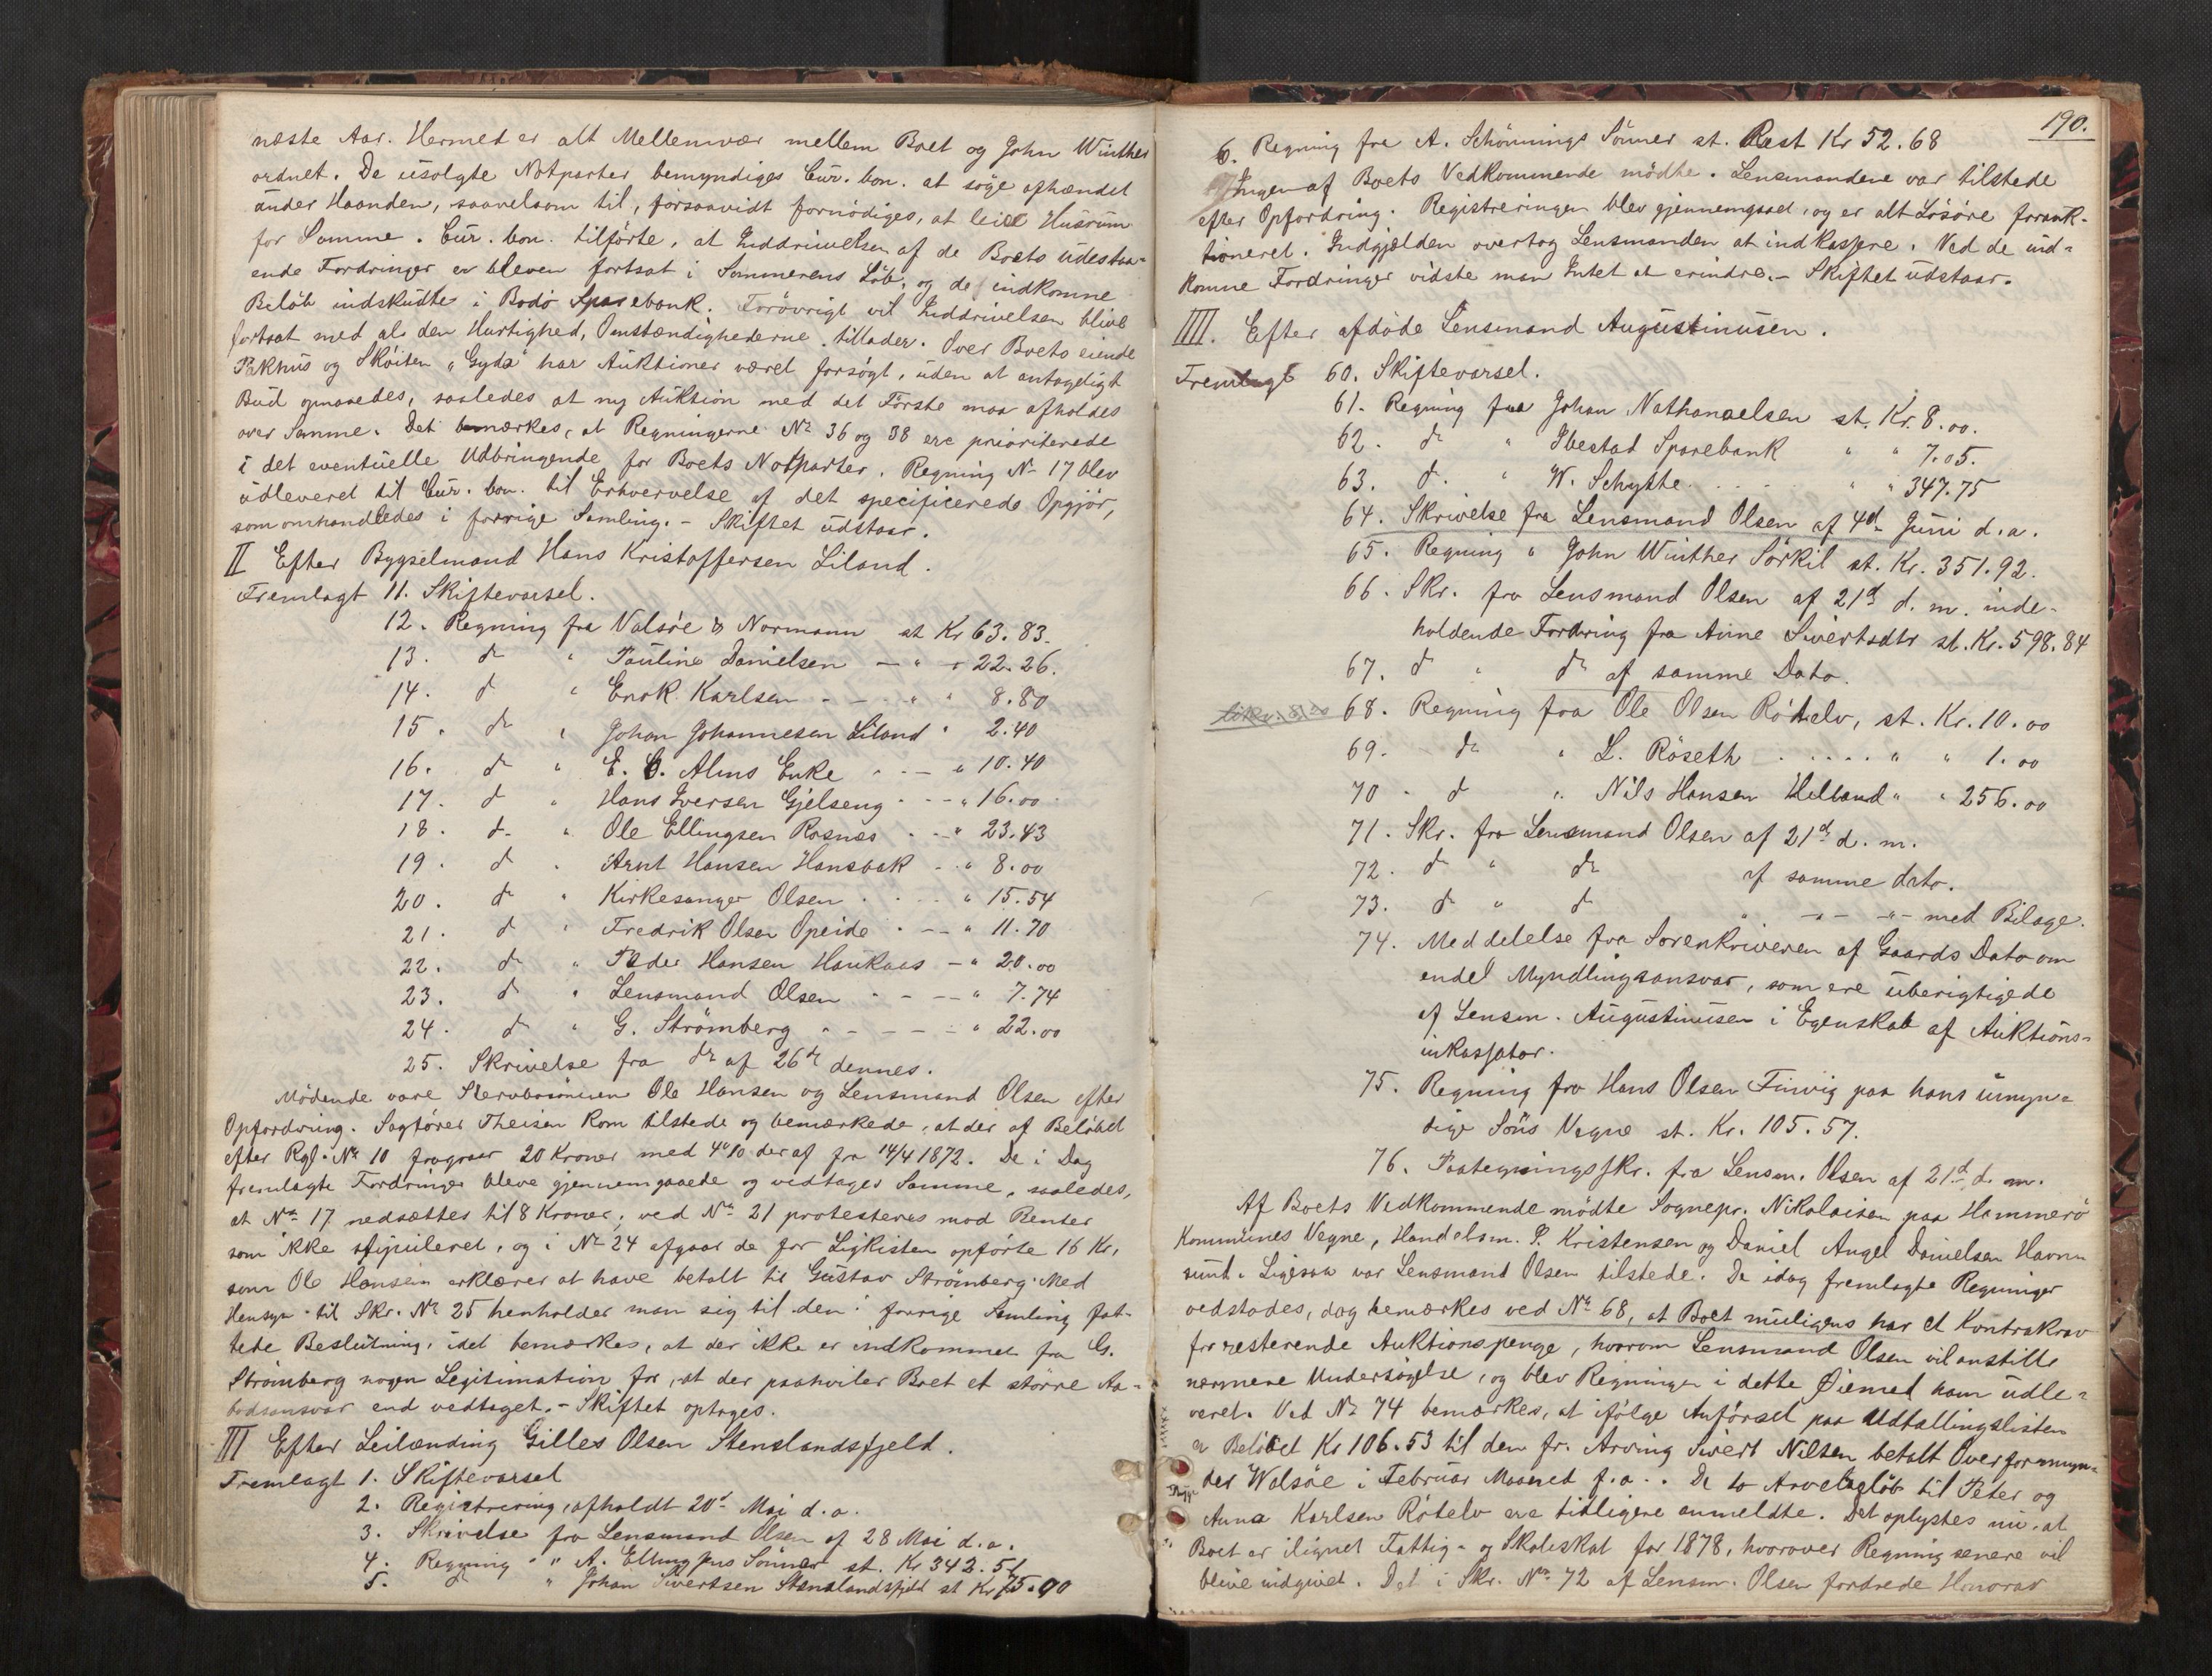 næste Aar. Hermed er alt Mellemvær mellem Boet og John Winther
ordnet. De usolgte Notparter bemyndiges Cur. bon. at söge afhændet
under Haanden, saavelsom til, forsaavidt fornödiges, at leie Husrum
for Samme. Cur. bon. tilförte, at Inddrivelsen af de Boets udestaa-
ende Fordringer er bleven fortsat i Sommerens Löb, og de indkomne
Belöb indskudte i Bodö Sparebank. Forövrigt vil Inddrivelsen blive
fortsat med al den Hurtighed, Omstændighederne tillader. Over Boets eiende
Pakhus og Sköiten "Gyda" har Auktioner været forsögt, uden at antageligt
Bud opnaaedes, saaledes at ny Auktion med det Förste maa afholdes
over Samme. Det bemærkes, at Regningerne No 36 og 38 ere prioriterede
i det eventuelle Udbringende for Boets Notparter. Regning No 17 blev
udleveret til Cur. bon. til Erhvervelse af det specificerede Opgjör,
som omhandledes i forrige Samling. - Skiftet udstaar.
II Efter Bygselmand Hans Kristoffersen Liland.
Fremlagt 11. Skiftevarsel.
12. Regning fra Valsöe & Normann st Kr 63.83.
13. do " Pauline Danielsen - " - 22.26.
14. do " Enok Karlsen - - - " " 8.80
15. do " Johan Johannesen Liland " 2.40
16. do " E. C. Alms Enke - - - " 10.40
17. do " Hans Iversen Gjelseng - - - " 16.00
18. do " Ole Ellingsen Rosnæs - - - " 23.43
19. do " Arnt Hansen Hansbak - - " 8.00
20. do " Kirkesanger Olsen - - - " 15.54
21. do " Fredrik Olsen Opeide - - - " 11.70
22. do " Peder Hansen Haukaas - " 20.00
23. do " Lensmand Olsen - - - - " 7.74
24. do " G. Strömberg - - - - - " 22.00
25. Skrivelse fra do af 26de dennes.
Mödende vare Stervbosönnen Ole Hansen og Lensmand Olsen efter
Opfordring. Sagförer Theisen kom tilstede og bemærkede, at der af Belöbet
efter Rgf. No 10 fragaar 20 Kroner med 4% deraf fra 14/4 1872. De i Dag
fremlagte Fordringer bleve gjennemgaaede og vedtages Samme, saaledes,
at No 17 nedsættes til 8 Kroner, ved No 21 protesteres mod Renter
som ikke stipuleret, og i No 24 afgaar de for Ligkisten opförte 16 Kr,
som Ole Hansen erklærer at have betalt til Gustav Strömberg. Med
Hensyn til Skr. No 25 henholder man sig til den i forrige Samling fat-
tede Beslutning, idet bemærkes, at der ikke er indkommet fra G.
Strömberg nogen Legitimation for, at der paahviler Boet et större Aa-
bodsansvar end vedtaget. - Skiftet optages.
III Efter Leilænding Gilles Olsen Stenslandsfjeld.
Fremlagt 1. Skiftevarsel
2. Registrering, afholdt 20d Mai d.a.
3. Skrivelse fra Lensmand Olsen af 28 Mai d.a.
4. Regning " A. Ellingsens Sönner st. Kr 342.51
5. do " Johan Sivertsen Stenslandsfjeld st Kr 75.90
190.
6. Regning fra A. Schönnings Sönner st. Rest Kr 52.68
Ingen af Boets Vedkommende mödte. Lensmanden var tilstede
efter Opfordring. Registreringen blev gjennemgaaet, og er alt Lösöre forauk-
tioneret. Indgjælden overtog Lensmanden at indkassere. Ved de ind-
komne Fordringer vidste man Intet at erindre. - Skiftet udstaar.
IIII. Efter afdöde Lensmand Augustinusen.
Fremlagt 60. Skiftevarsel.
61. Regning fra Johan Nathanaelsen st. Kr. 8.00.
62. do " Ibestad Sparebank " " 7.05.
63. do " W. Schytte . . . . . " " 347.75
64. Skrivelse fra Lensmand Olsen af 4de Juni d.a.
65. Regning " John Winther Sörkil st. Kr. 351.92.
66. Skr. fra Lensmand Olsen af 21de d.m. inde-
holdende Fordring fra Anne Sivertsdtr st. Kr. 598.84
67. do " do af samme Dato.
68. Regning fra Ole Olsen Rötelv, st. Kr. 10.00
69. do " L. Röseth . . . . . " " 1.00
70. do " Nils Hansen Helland " " 256.00
71. Skr. fra Lensmand Olsen af 21de d.m.
72. do " do af samme dato.
73. do " do " -"- -"- med Bilage.
74. Meddelelse fra Sorenskriveren af Gaards Dato om
endel Myndlingsansvar, som ere uberigtigede
af Lensm. Augustinusen i Egenskab af Auktions-
inkassator.
75. Regning fra Hans Olsen Finvig paa hans umyn-
dige Söns Vegne st. Kr. 105.57.
76. Paategningsskr. fra Lensm. Olsen af 21de d.m.
Af Boets Vedkommende mödte Sognepr. Nikolaisen paa Hammerö
Kommunes Vegne, Handelsm. P. Kristensen og Daniel Angel Danielsen Havn-
sund. Ligesaa var Lensmand Olsen tilstede. De idag fremlagte Regninger
vedstodes, dog bemærkes ved No 68, at Boet muligens har et Kontrakrav
for resterende Auktionspenge, hvorom Lensmand Olsen vil anstille
nærmere Undersögelse, og blev Regningen i dette Öiemed ham udle-
veret. Ved No 74 bemærkes, at ifölge Anförsel paa Udtallingslisten
er Belöbet Kr 106.53 til den fr. Arving Sivert Nilsen betalt Overformyn-
der Walsöe i Februar Maaned f.a.. De to Arvebelöb til Peter og
Anna Karlsen Rötelv ere tidligere anmeldte. Det oplystes nu, at
Boet er ilignet Fattig- og Skoleskat for 1878, hvorover Regning senere vil
blive indgivet. Det i Skr. No 72 af Lensm. Olsen fordrede Honorar